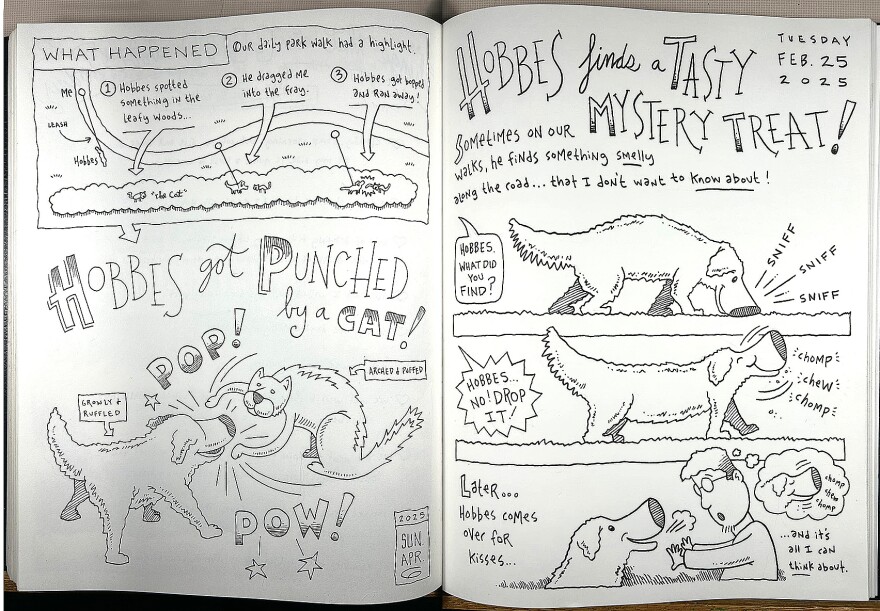 WHAT HAPPENED
Our daily park walk had a highlight.
Me
LEASH
Hobbes
1 Hobbes spotted
something in the
leafy woods...
2 He dragged me
into the fray.
3 Hobbes got bopped
and ran away!
"The Cat"
HOBBES got PUNCHED
by a CAT!
POP!
ARCHED & PUFFED
GROWLY &
RUFFLED
POW!
2025
SUN.
APR.
6
HOBBES finds a TASTY
MYSTERY TREAT!
TUESDAY
FEB. 25
2025
Sometimes on our
walks, he finds something smelly
along the road... that I don't want to know about!
HOBBES.
WHAT DID
YOU
FIND?
SNIFF
SNIFF
SNIFF
HOBBES...
NO! DROP
IT!
chomp
chew
chomp
Later...
Hobbes comes
over for
kisses...
chomp
chew
chomp
...and it's
all I can
think about.